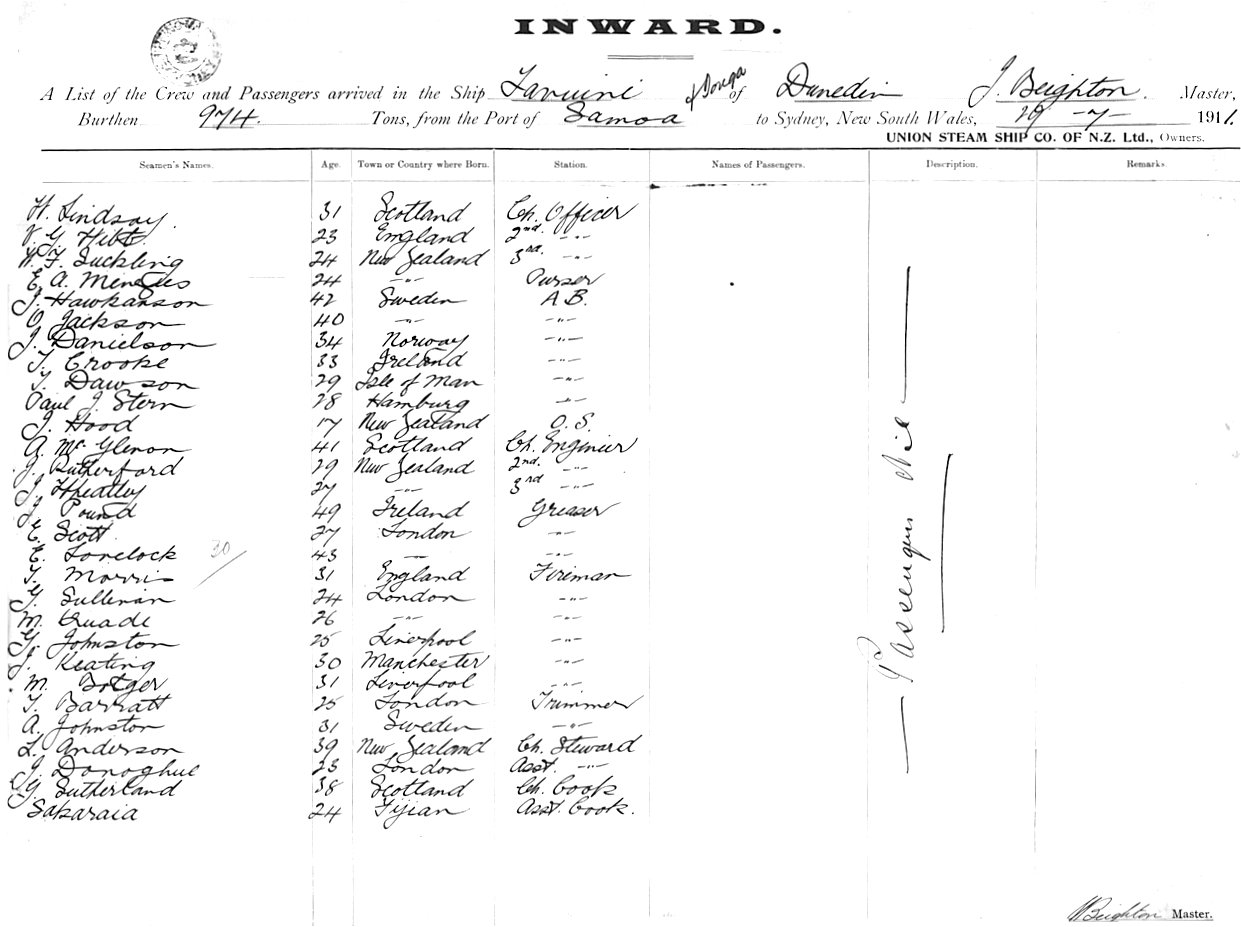 INWARD.
A List of the Crew and Passengers arrived in the Ship Taviuni & Tonga of Dunedin J. Beighton. Master,
Burthen 974. Tons, from the Port of Samoa to Sydney, New South Wales, 29 - 7 - 1911.
UNION STEAM SHIP CO. OF N.Z. Ltd., Owners.
Seamen's Names. Age. Town or Country where Born. Station. Names of Passengers. Description. Remarks.
H. Lindsay. 31 Scotland Ch. Officer
V. G. 23 England 2nd. -"-
W. F. Suckling 24 New Zealand 3rd. -"-
E. A. Menzies 24 -"- Purser
J. Hawkanson 42 Sweden A.B.
O. Jackson 40 -"- -"-
J. Danielson 34 Norway -"-
T. Crooke 33 Ireland -"-
T. Dawson 29 Isle of Man -"-
Paul J. Stern 28 Hamburg -"-
J. Hood 17 New Zealand O.S.
A. McGlenon 41 Scotland Ch. Enginier
J. Rutherford 29 New Zealand 2nd. -"-
J. Wheatley 27 -"- 3rd -"-
J. Pound 49 Ireland Greaser
E. Scott 27 London -"-
E. Lovelock 43 -"- -"-
30/
T. Morris 31 England Fireman
G. Sullivan 24 London -"-
M. Quade 26 -"- -"-
G. Johnston 25 Liverpool -"-
J. Keating 30 Manchester -"-
M. Bolger 31 Liverpool -"-
T. Barratt 25 London Trimmer
A. Johnston 31 Sweden -"-
L. Anderson 39 New Zealand Ch. Steward
J. Donoghue 23 London Asst. -"-
G. Sutherland 38 Scotland Ch. Cook
Sakaraia 24 Fijian Asst. Cook.
— Passengers Nil —
Beighton Master.